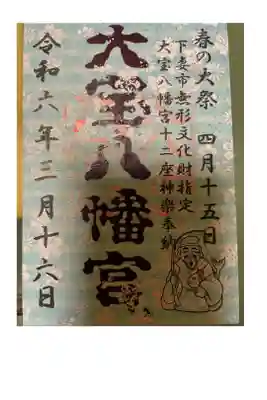 春の大祭 四月十五日
下妻市無形文化財指定
大宝八幡宮十二座神楽奉納
大宝八幡宮
令和六年三月十六日